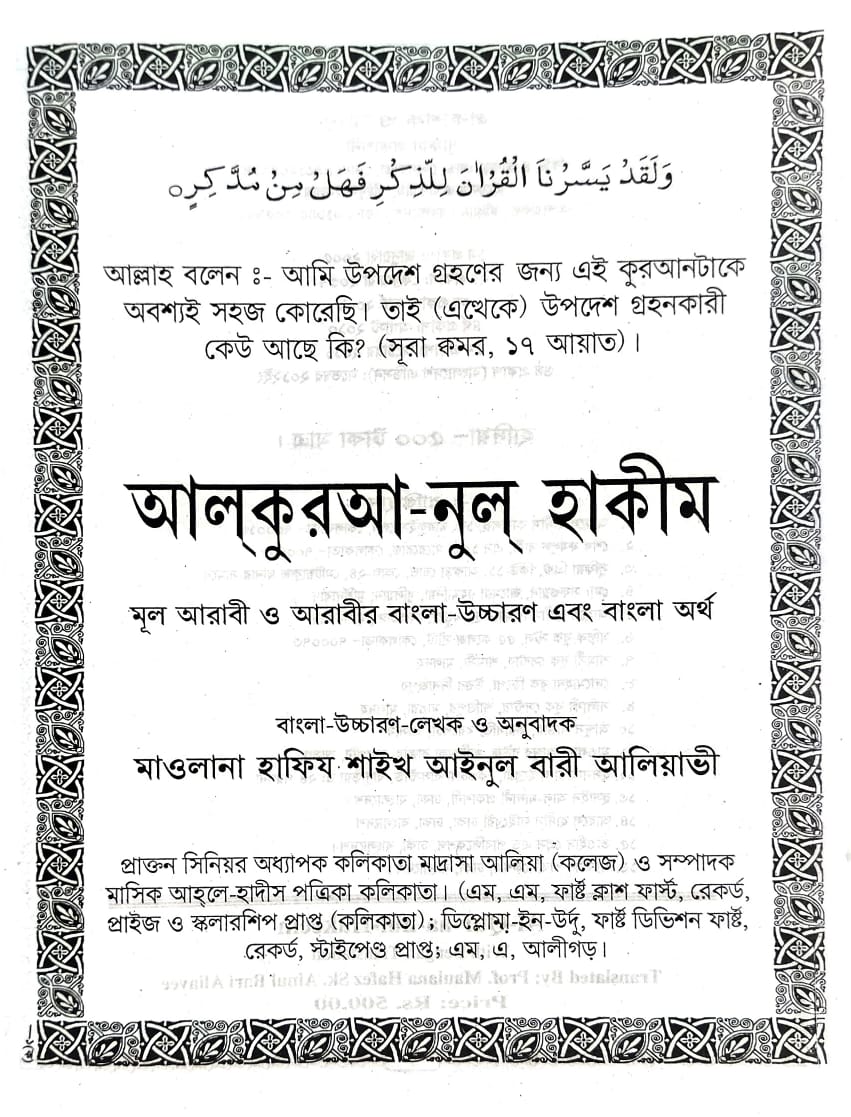 وَلَقَدْ يَسَّرْنَا الْقُرْاٰنَ لِلذِّكْرِ فَهَلْ مِنْ مُّدَّكِرٍ○
আল্লাহ বলেন ঃ- আমি উপদেশ গ্রহণের জন্য এই কুরআনটাকে
অবশ্যই সহজ কোরেছি। তাই (এত্থেকে) উপদেশ গ্রহনকারী
কেউ আছে কি? (সূরা কমর, ১৭ আয়াত)।
আল্‌কুরআ-নুল্ হাকীম
মূল আরাবী ও আরাবীর বাংলা-উচ্চারণ এবং বাংলা অর্থ
বাংলা-উচ্চারণ-লেখক ও অনুবাদক
মাওলানা হাফিয শাইখ আইনুল বারী আলিয়াভী
প্রাক্তন সিনিয়র অধ্যাপক কলিকাতা মাদ্রাসা আলিয়া (কলেজ) ও সম্পাদক
মাসিক আহলে-হাদীস পত্রিকা কলিকাতা। (এম, এম, ফার্ষ্ট ক্লাশ ফার্স্ট, রেকর্ড,
প্রাইজ ও স্কলারশিপ প্রাপ্ত (কলিকাতা); ডিপ্লোমা-ইন-উর্দু, ফার্ষ্ট ডিভিশন ফার্ষ্ট,
রেকর্ড, স্টাইপেণ্ড প্রাপ্ত; এম, এ, আলীগড়।